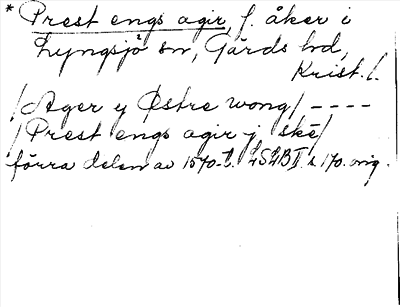 * Prest engs agir, f. åker i
Lyngsjö sn, Gärds hd,
Krist. l.
/Ager y Østre wong/ ----
/Prest engs agir j. skë/
förra delen av 1570-t. LSLB II s. 170. orig.